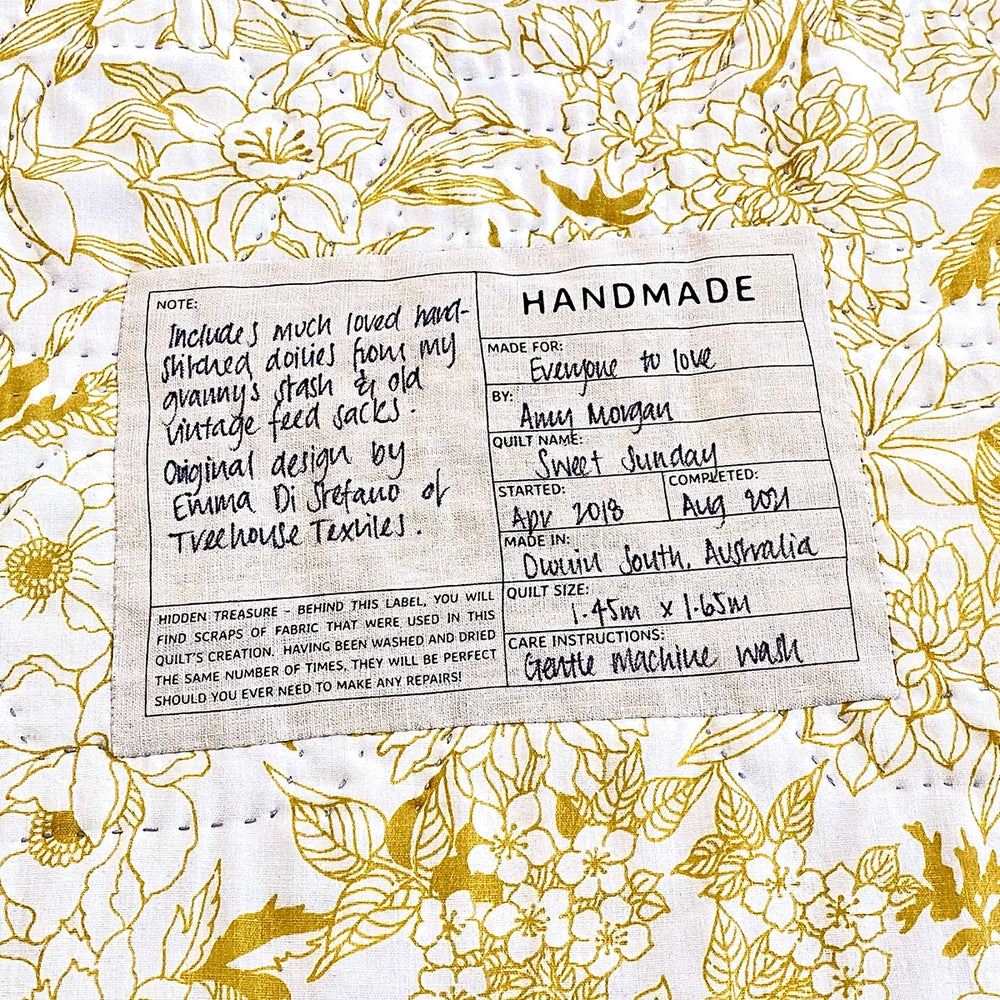 NOTE:
Includes much loved hand-
stitched doilies from my
granny's stash & old
vintage feed sacks.
Original design by
Emma Di Stefano of
Treehouse Textiles.
HIDDEN TREASURE – BEHIND THIS LABEL, YOU WILL
FIND SCRAPS OF FABRIC THAT WERE USED IN THIS
QUILT'S CREATION. HAVING BEEN WASHED AND DRIED
THE SAME NUMBER OF TIMES, THEY WILL BE PERFECT
SHOULD YOU EVER NEED TO MAKE ANY REPAIRS!
HANDMADE
MADE FOR:
Everyone to love
BY:
Amy Morgan
QUILT NAME:
Sweet Sunday
STARTED:
Apr 2018
COMPLETED:
Aug 2021
MADE IN:
South, Australia
QUILT SIZE:
1.45m x 1.65m
CARE INSTRUCTIONS:
Gentle machine wash